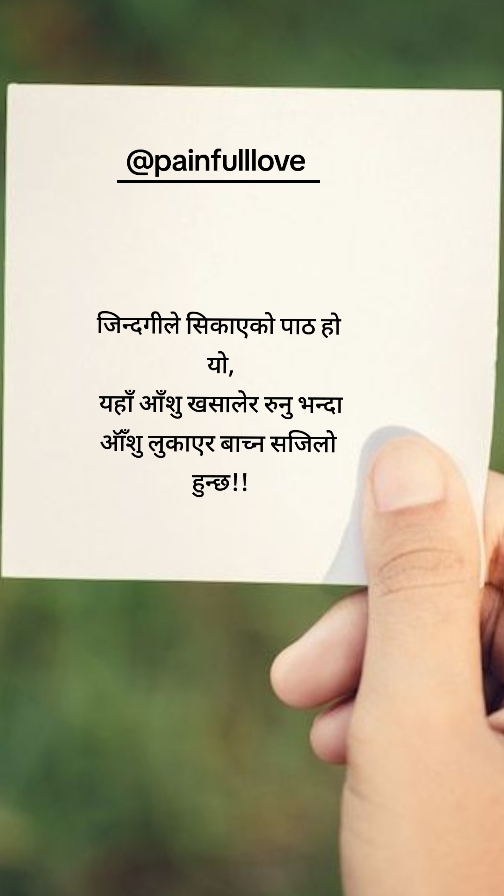 @painfulllove
जिन्दगीले सिकाएको पाठ हो
यो,
यहाँ आँशु खसालेर रुनु भन्दा
आँशु लुकाएर बाच्न सजिलो
हुन्छ!!